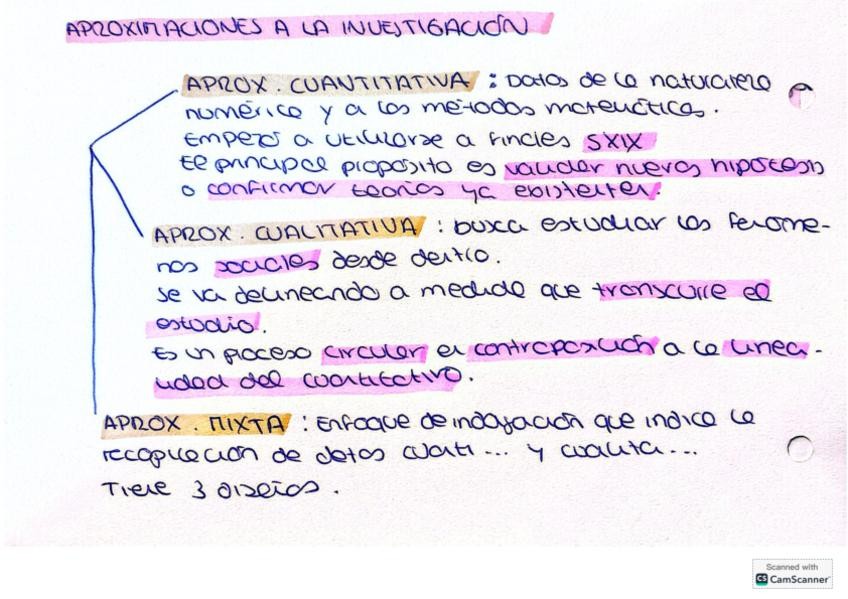 APROXIMACIONES A LA INVESTIGACIÓN
APROX. CUANTITATIVA : Datos de la naturaleza
numérica y a los métodos matemáticos.
Empezó a utilizarse a finales SXIX
El principal propósito es validar nuevas hipótesis
o confirmar teorías ya existentes.
APROX. CUALITATIVA : busca estudiar los fenóme-
nos sociales desde dentro.
Se va delineando a medida que transcurre el
estudio.
Es un proceso circular en contraposición a la linea-
lidad del cuantitativo.
APROX. MIXTA : Enfoque de indagación que indica la
recopilación de datos cuanti... y cualita...
Tiene 3 diseños.
Scanned with
CS CamScanner